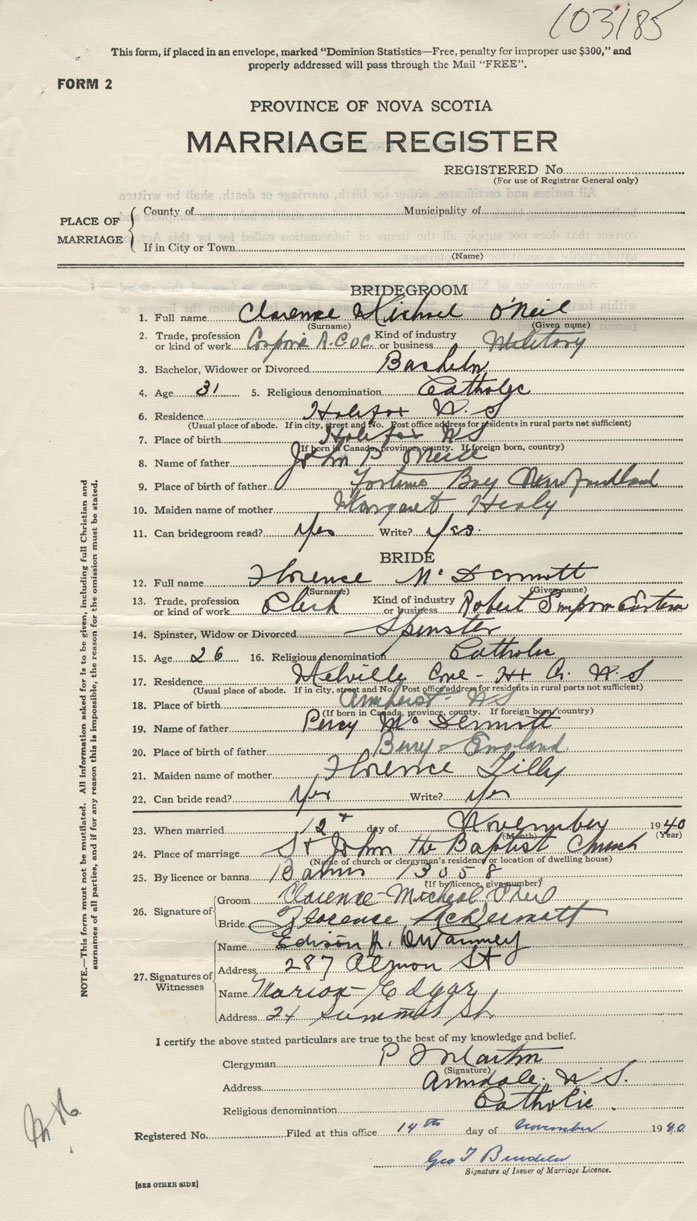 103185
This form, if placed in an envelope, marked "Dominion Statistics—Free, penalty for improper use $300," and
properly addressed will pass through the Mail "FREE".
FORM 2
PROVINCE OF NOVA SCOTIA
MARRIAGE REGISTER
REGISTERED No.
(For use of Registrar General only)
PLACE OF MARRIAGE
County of Municipality of
If in City or Town
(Name)
BRIDEGROOM
1. Full name Clarence Michael O'Neil
(Surname) (Given name)
2. Trade, profession or kind of work R.C.O.C. Kind of industry or business Military
3. Bachelor, Widower or Divorced Bachelor
4. Age 31 5. Religious denomination Catholic
6. Residence Halifax N.S
(Usual place of abode. If in city, street and No. Post office address for residents in rural parts not sufficient)
7. Place of birth Halifax NS
(If born in Canada, province, county. If foreign born, country)
8. Name of father John P O'Neil
9. Place of birth of father Fortune Bay Newfoundland
10. Maiden name of mother Margaret Healy
11. Can bridegroom read? Yes Write? Yes.
BRIDE
12. Full name Florence McDermott
(Surname) (Given name)
13. Trade, profession or kind of work Clerk Kind of industry or business Robert Simpson Eastern
14. Spinster, Widow or Divorced Spinster
15. Age 26 16. Religious denomination Catholic
17. Residence Melville Cove - Hx Co. N.S
(Usual place of abode. If in city, street and No. Post office address for residents in rural parts not sufficient)
18. Place of birth Amherst NS
(If born in Canada, province, county. If foreign born, country)
19. Name of father Percy McDermott
20. Place of birth of father England
21. Maiden name of mother Florence Lilly
22. Can bride read? Yes Write? Yes
23. When married 12 day of November 1940
(Month) (Year)
24. Place of marriage St John the Baptist Church
(Name of church or clergyman's residence, or location of dwelling house)
25. By licence or banns Banns 13058
(If by licence, give number)
26. Signature of
Groom Clarence Micheal O'Neil
Bride Florence McDermott
27. Signatures of Witnesses
Name Edison
Address 287 Almon St
Name Marion Edgar
Address 24 Summer St.
I certify the above stated particulars are true to the best of my knowledge and belief.
Clergyman P J Martin
(Signature)
Address Armdale, N.S.
Religious denomination Catholic.
Registered No. Filed at this office 14th day of November 1940
Geo T
Signature of Issuer of Marriage Licence.
[SEE OTHER SIDE]
NOTE.—This form must not be mutilated. All information asked for is to be given, including full Christian and
surnames of all parties, and if for any reason this is impossible, the reason for the omission must be stated.